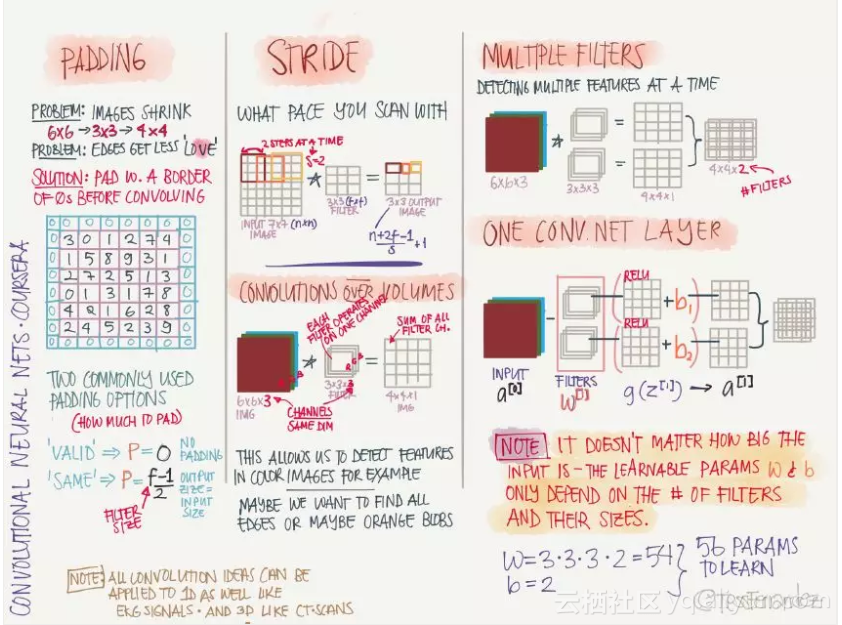 CONVOLUTIONAL NEURAL NETS · COURSERA
PADDING
PROBLEM: IMAGES SHRINK
6x6 → 3x3 → 4x4
PROBLEM: EDGES GET LESS 'LOVE'
SOLUTION: PAD W. A BORDER
OF 0s BEFORE CONVOLVING
0 0 0 0 0 0 0 0
0 3 0 1 2 7 4 0
0 1 5 8 9 3 1 0
0 2 7 2 5 1 3 0
0 0 1 3 1 7 8 0
0 4 2 1 6 2 8 0
0 2 4 5 2 3 9 0
0 0 0 0 0 0 0 0
TWO COMMONLY USED
PADDING OPTIONS
(HOW MUCH TO PAD)
'VALID' ⇒ P = 0 NO PADDING
'SAME' ⇒ P = f-1/2 OUTPUT SIZE = INPUT SIZE
FILTER SIZE
NOTE: ALL CONVOLUTION IDEAS CAN BE
APPLIED TO 1D AS WELL LIKE
EKG SIGNALS · AND 3D LIKE CT-SCANS
STRIDE
WHAT PACE YOU SCAN WITH
2 STEPS AT A TIME
S=2
* =
INPUT 7x7 (nxn)
IMAGE
3x3 (fxf)
FILTER
3x3 OUTPUT
IMAGE
n+2f-1/s +1
CONVOLUTIONS OVER VOLUMES
EACH
FILTER OPERATES
ON ONE CHANNEL
SUM OF ALL
FILTER CH.
* =
R G B
6x6x3
IMG
3x3x3
FILTER
4x4x1
IMG
CHANNELS
SAME DIM
THIS ALLOWS US TO DETECT FEATURES
IN COLOR IMAGES FOR EXAMPLE
MAYBE WE WANT TO FIND ALL
EDGES OR MAYBE ORANGE BLOBS
MULTIPLE FILTERS
DETECTING MULTIPLE FEATURES AT A TIME
* =
=
6x6x3
3x3x3
4x4x1
4x4x2
# FILTERS
ONE CONV. NET LAYER
RELU
( + b₁ )
RELU
( + b₂ )
INPUT
a[0]
FILTERS
W[1]
g(z[1]) → a[1]
NOTE IT DOESN'T MATTER HOW BIG THE
INPUT IS - THE LEARNABLE PARAMS W & b
ONLY DEPEND ON THE # OF FILTERS
AND THEIR SIZES.
W = 3·3·3·2 = 54
b = 2
} 56 PARAMS
TO LEARN
云栖社区
@TessFerrandez